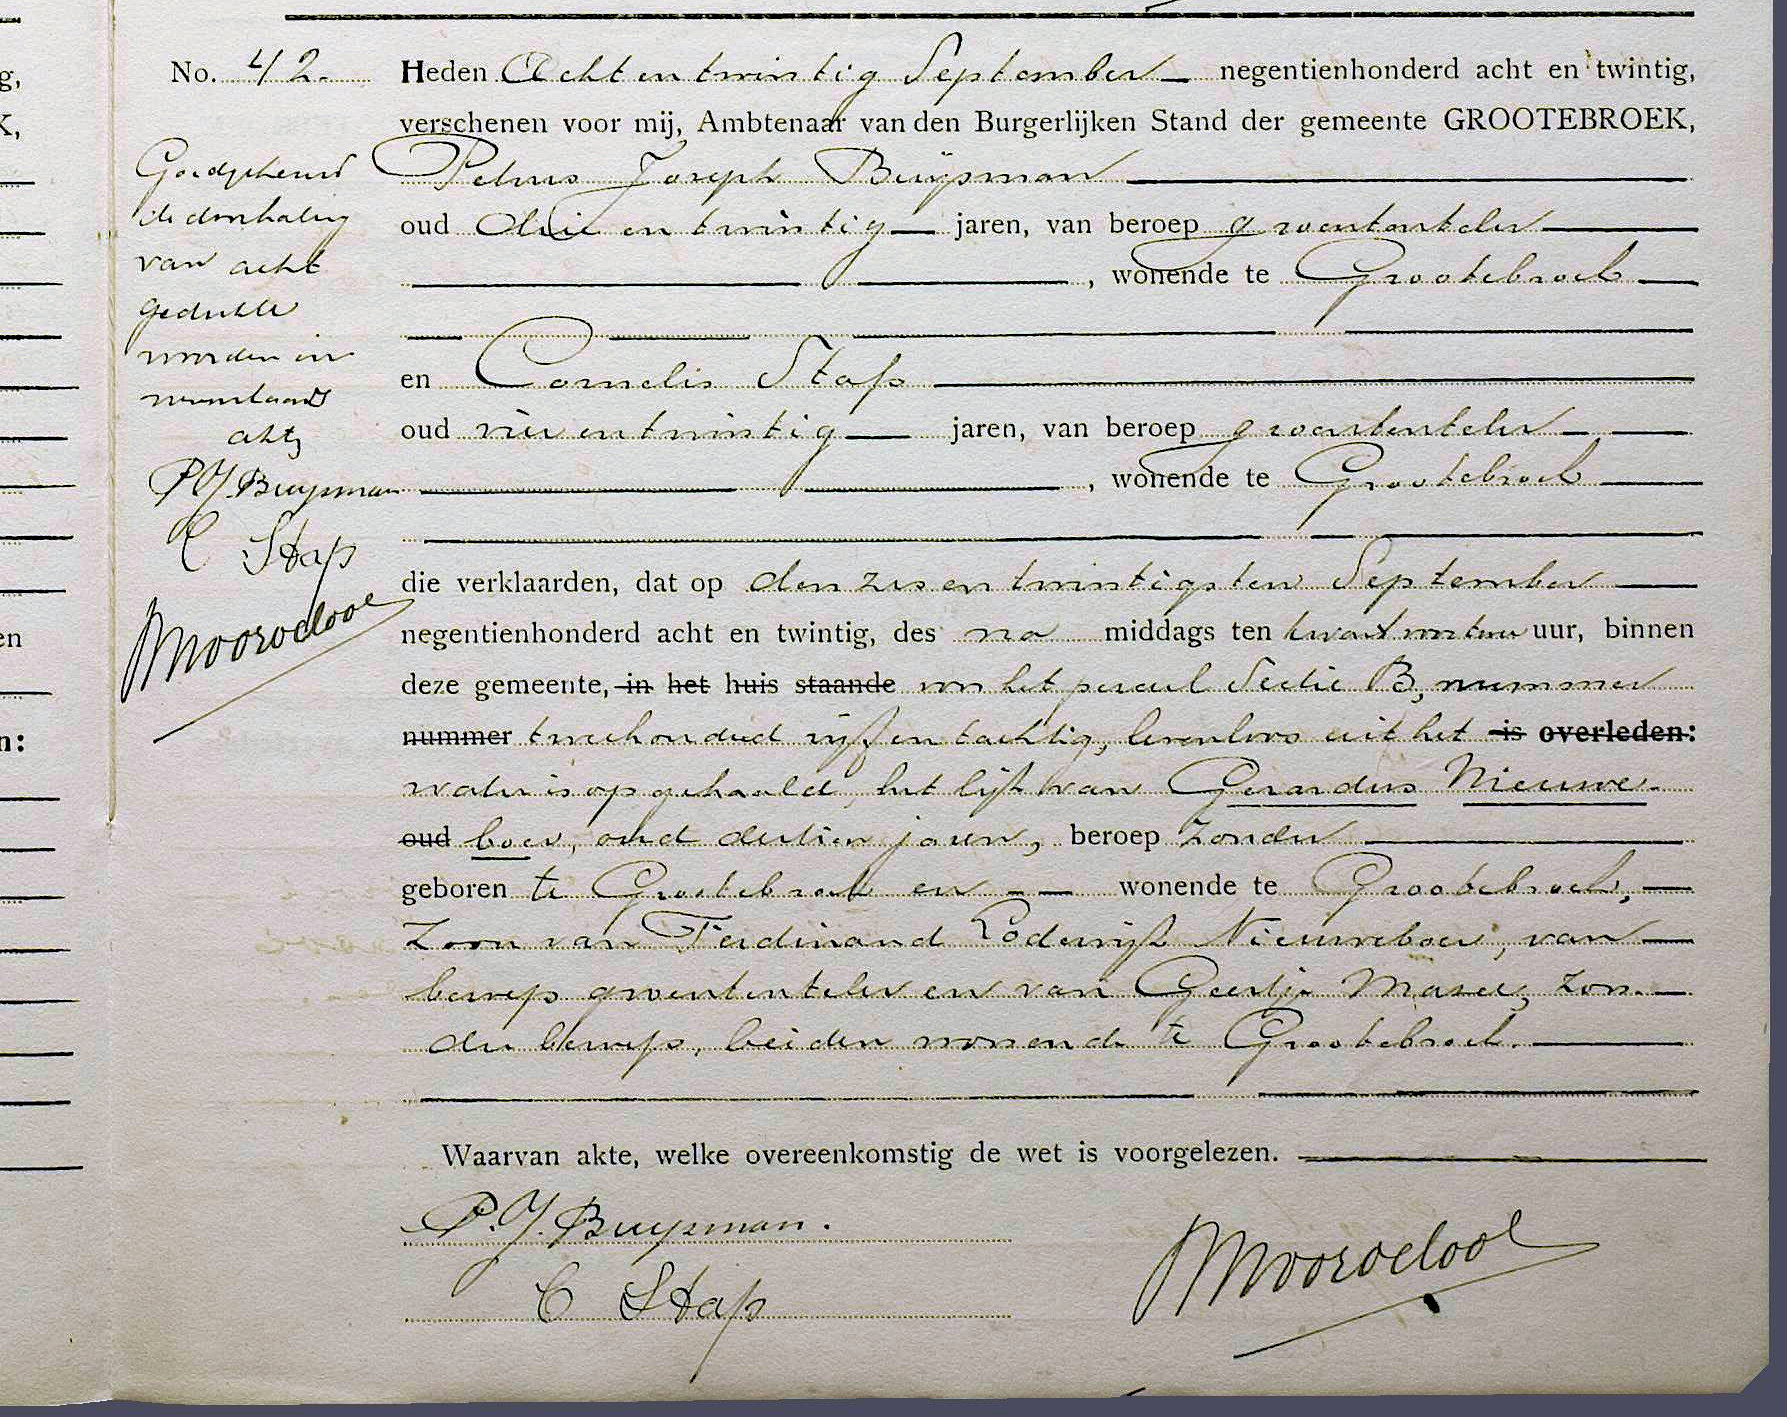 g,
K,
en
n:
No. 42.
Heden Acht en twintig September negentienhonderd acht en twintig,
verschenen voor mij, Ambtenaar van den Burgerlijken Stand der gemeente GROOTEBROEK,
Petrus Joseph Buijsman
oud drie en twintig jaren, van beroep groententeler
, wonende te Grootebroek
en Cornelis Stap
oud vier en twintig jaren, van beroep groententeler
, wonende te Grootebroek
die verklaarden, dat op den zes en twintigsten September
negentienhonderd acht en twintig, des na middags ten twaalf uur, binnen
deze gemeente, in het huis staande het perceel Sectie B, nummer
nummer tweehonderd vijf en tachtig, levenloos uit het is overleden:
water is opgehaald, het lijk van Gerardus Nieuwe-
oud boer, oud dertien jaren, beroep zonder
geboren te Grootebroek en - - wonende te Grootebroek,
zoon van Ferdinand Lodewijk Nieuweboer, van
beroep groententeler en van Geertje Masee, zon-
der beroep, beiden wonende te Grootebroek.
Waarvan akte, welke overeenkomstig de wet is voorgelezen.
P. J. Buysman.
C Stap
Mooroeloot
Goedgekeurd
de doorhaling
van acht
gedrukte
woorden in
nevenstaande
akte
P J Buysman
C Stap